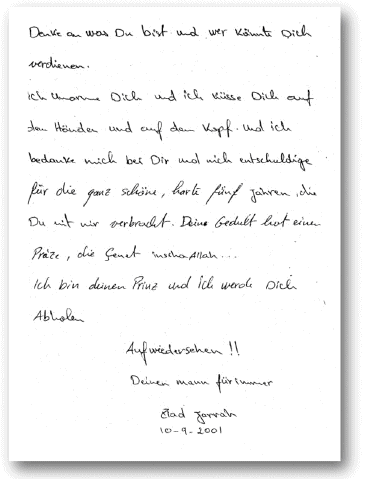 Denke an was Du bist und wer könnte Dich
verdienen.
Ich umarme Dich und ich küsse Dich auf
den Händen und auf dem Kopf. und ich
bedanke mich bei Dir und mich entschuldige
für die ganz schöne, harte fünf jahren, die
Du mit mir verbracht. Deine Gedult hat einen
Preize, die Genet inschaAllah...
Ich bin deinen Prinz und ich werde Dich
Abholen
Aufwiedersehen !!
Deinen mann für immer
Ziad Jarrah
10-9-2001